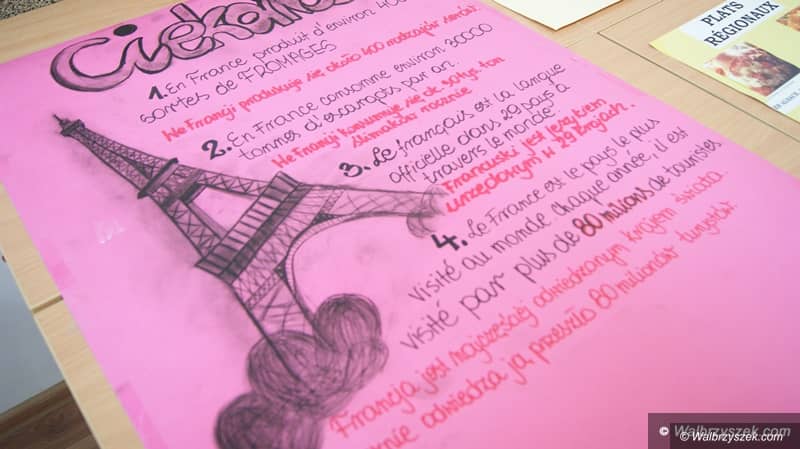 1. En France produit d'environ 400
sortes de FROMAGES
Na Francji produkuje się około 400 rodzajów serów.
2. En France consomme environ 30000
tonnes d'escargots par an.
Na Francji konsumuje się ok. 30 tys. ton
ślimaków rocznie
3. Le français est la langue
officielle dans 29 pays a
travers le monde.
Francuski jest językiem
urzędowym w 29 krajach.
4. Le France est le pays le plus
visité au monde. Chaque année, il est
visité par plus de 80 milions de touristes
Francja jest najczęściej odwiedzanym krajem świata.
odwiedza ją przeszło 80 milionów turystów.
PLATS
RÉGIONAUX
© Walbrzyszek.com
© Walbrzyszek.com